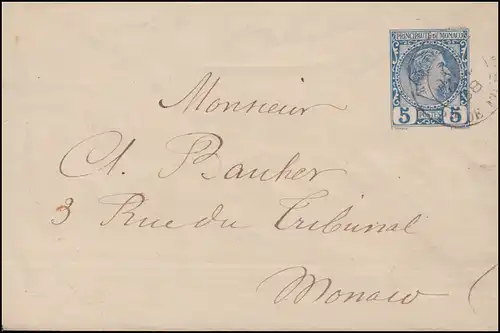 PRINCIPAUTÉ DE MONACO
5 POSTES 5
DE
Monsieur
Ct. Banker
3 Rue du Tribunal
Monaco